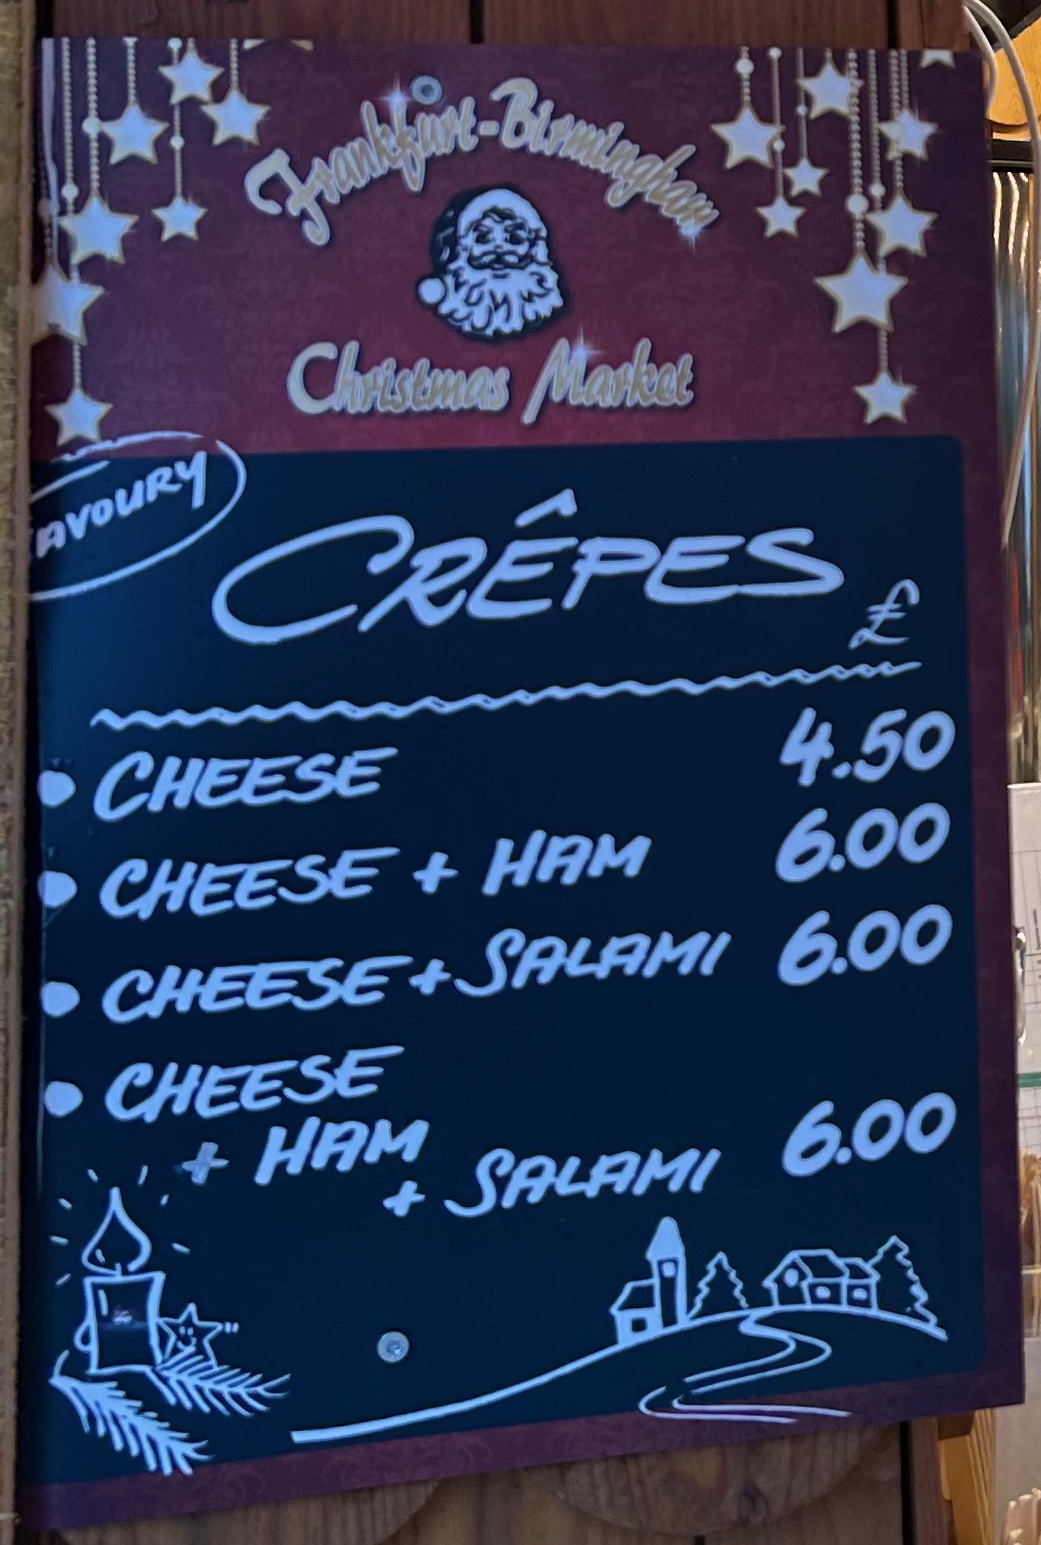 Frankfurt-Birmingham
Christmas Market
AVOURY
CRÊPES
£
• CHEESE 4.50
• CHEESE + HAM 6.00
• CHEESE + SALAMI 6.00
• CHEESE
+ HAM
+ SALAMI 6.00